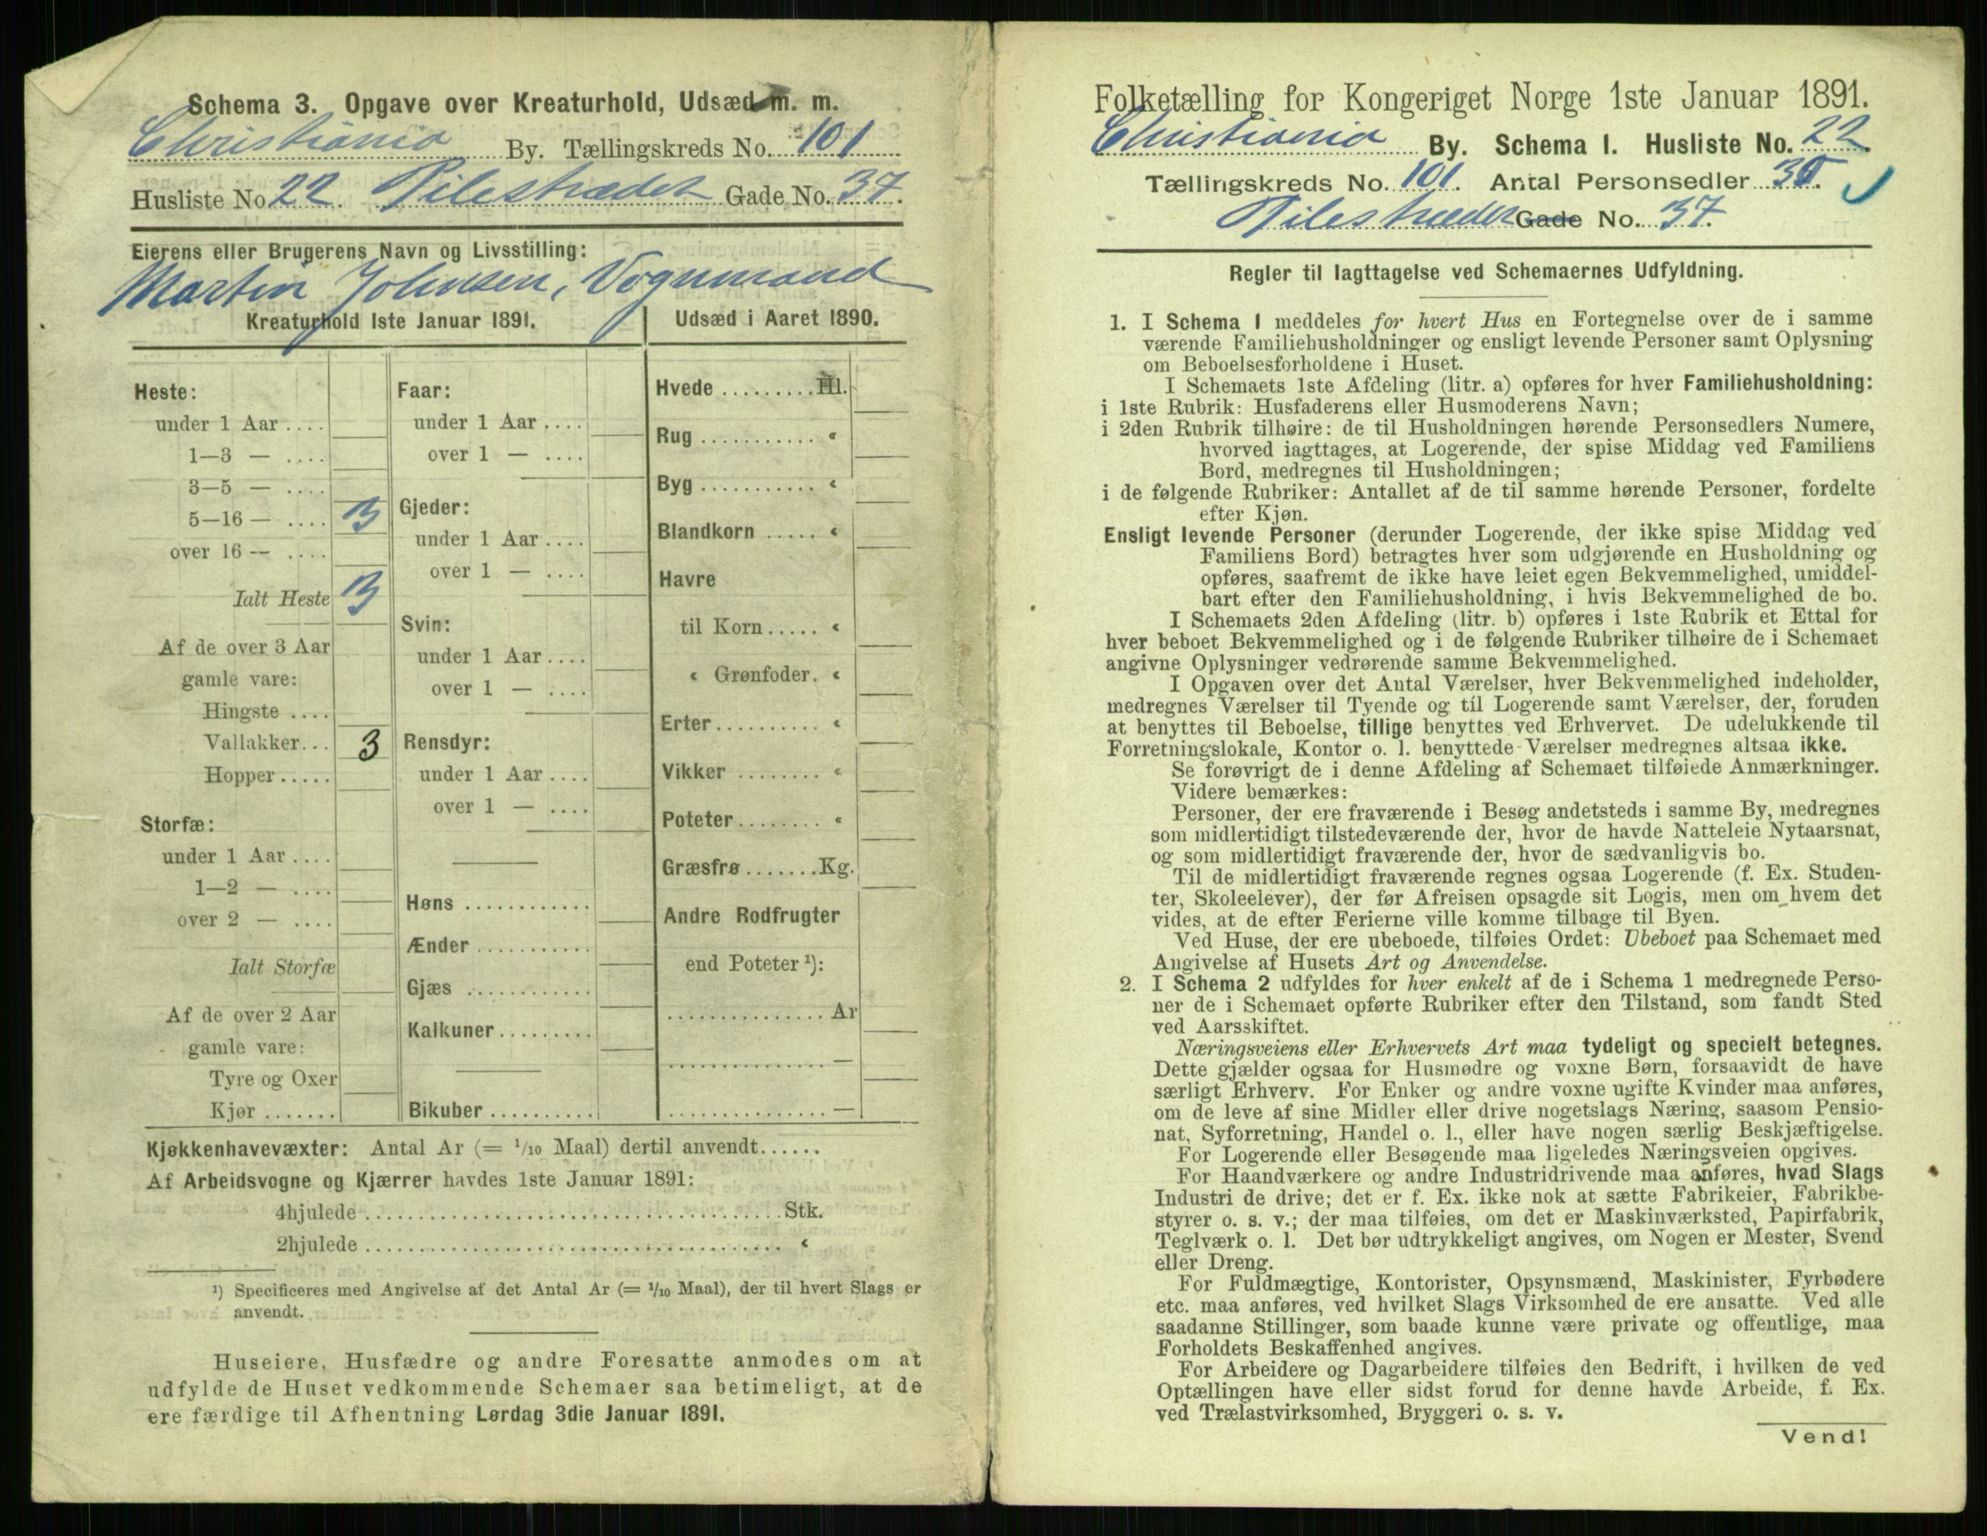 Schema 3. Opgave over Kreaturhold, Udsæd m. m.
Christiania By. Tællingskreds No. 101
Husliste No 22. Pilestrædet Gade No. 37.
Eierens eller Brugerens Navn og Livsstilling:
Martin Johnsen, Vognmand
Kreaturhold 1ste Januar 1891.
Heste:
under 1 Aar ....
1—3 — ....
3—5 — ....
5—16 — .... 3
over 16 — ....
Ialt Heste 3
Af de over 3 Aar
gamle vare:
Hingste ....
Vallakker... 3
Hopper.....
Storfæ:
under 1 Aar ....
1—2 — ....
over 2 — ....
Ialt Storfæ
Af de over 2 Aar
gamle vare:
Tyre og Oxer
Kjør .......
Faar:
under 1 Aar ....
over 1 — ....
Gjeder:
under 1 Aar ....
over 1 — ....
Svin:
under 1 Aar ....
over 1 — ....
Rensdyr:
under 1 Aar ....
over 1 — ....
Høns ............
Ænder ...........
Gjæs ............
Kalkuner .........
Bikuber ..........
Udsæd i Aaret 1890.
Hvede ......... Hl.
Rug ........... «
Byg ........... «
Blandkorn ..... «
Havre
til Korn ..... «
« Grønfoder. «
Erter .......... «
Vikker ........ «
Poteter ........ «
Græsfrø ....... Kg.
Andre Rodfrugter
end Poteter ¹):
............... Ar
............... —
............... —
Kjøkkenhavevæxter: Antal Ar (= 1/10 Maal) dertil anvendt......
Af Arbeidsvogne og Kjærrer havdes 1ste Januar 1891:
4hjulede ........................................ Stk.
2hjulede ........................................ «
¹) Specificeres med Angivelse af det Antal Ar (= 1/10 Maal), der til hvert Slags er
anvendt.
Huseiere, Husfædre og andre Foresatte anmodes om at
udfylde de Huset vedkommende Schemaer saa betimeligt, at de
ere færdige til Afhentning Lørdag 3die Januar 1891.
Folketælling for Kongeriget Norge 1ste Januar 1891.
Christiania By. Schema I. Husliste No. 22
Tællingskreds No. 101. Antal Personsedler
Pilestrædet Gade No. 37.
Regler til Iagttagelse ved Schemaernes Udfyldning.
1. I Schema 1 meddeles for hvert Hus en Fortegnelse over de i samme
værende Familiehusholdninger og ensligt levende Personer samt Oplysning
om Beboelsesforholdene i Huset.
I Schemaets 1ste Afdeling (litr. a) opføres for hver Familiehusholdning:
i 1ste Rubrik: Husfaderens eller Husmoderens Navn;
i 2den Rubrik tilhøire: de til Husholdningen hørende Personsedlers Numere,
hvorved iagttages, at Logerende, der spise Middag ved Familiens
Bord, medregnes til Husholdningen;
i de følgende Rubriker: Antallet af de til samme hørende Personer, fordelte
efter Kjøn.
Ensligt levende Personer (derunder Logerende, der ikke spise Middag ved
Familiens Bord) betragtes hver som udgjørende en Husholdning og
opføres, saafremt de ikke have leiet egen Bekvemmelighed, umiddel-
bart efter den Familiehusholdning, i hvis Bekvemmelighed de bo.
I Schemaets 2den Afdeling (litr. b) opføres i 1ste Rubrik et Ettal for
hver beboet Bekvemmelighed og i de følgende Rubriker tilhøire de i Schemaet
angivne Oplysninger vedrørende samme Bekvemmelighed.
I Opgaven over det Antal Værelser, hver Bekvemmelighed indeholder,
medregnes Værelser til Tyende og til Logerende samt Værelser, der, foruden
at benyttes til Beboelse, tillige benyttes ved Erhvervet. De udelukkende til
Forretningslokale, Kontor o. l. benyttede Værelser medregnes altsaa ikke.
Se forøvrigt de i denne Afdeling af Schemaet tilføiede Anmærkninger.
Videre bemærkes:
Personer, der ere fraværende i Besøg andetsteds i samme By, medregnes
som midlertidigt tilstedeværende der, hvor de havde Natteleie Nytaarsnat,
og som midlertidigt fraværende der, hvor de sædvanligvis bo.
Til de midlertidigt fraværende regnes ogsaa Logerende (f. Ex. Studen-
ter, Skoleelever), der før Afreisen opsagde sit Logis, men om hvem det
vides, at de efter Ferierne ville komme tilbage til Byen.
Ved Huse, der ere ubeboede, tilføies Ordet: Ubeboet paa Schemaet med
Angivelse af Husets Art og Anvendelse.
2. I Schema 2 udfyldes for hver enkelt af de i Schema 1 medregnede Perso-
ner de i Schemaet opførte Rubriker efter den Tilstand, som fandt Sted
ved Aarsskiftet.
Næringsveiens eller Erhvervets Art maa tydeligt og specielt betegnes.
Dette gjælder ogsaa for Husmødre og voxne Børn, forsaavidt de have
særligt Erhverv. For Enker og andre voxne ugifte Kvinder maa anføres,
om de leve af sine Midler eller drive nogetslags Næring, saasom Pensio-
nat, Syforretning, Handel o. l., eller have nogen særlig Beskjæftigelse.
For Logerende eller Besøgende maa ligeledes Næringsveien opgives.
For Haandværkere og andre Industridrivende maa anføres, hvad Slags
Industri de drive; det er f. Ex. ikke nok at sætte Fabrikeier, Fabrikbe-
styrer o. s. v.; der maa tilføies, om det er Maskinværksted, Papirfabrik,
Teglværk o. l. Det bør udtrykkeligt angives, om Nogen er Mester, Svend
eller Dreng.
For Fuldmægtige, Kontorister, Opsynsmænd, Maskinister, Fyrbødere
etc. maa anføres, ved hvilket Slags Virksomhed de ere ansatte. Ved alle
saadanne Stillinger, som baade kunne være private og offentlige, maa
Forholdets Beskaffenhed angives.
For Arbeidere og Dagarbeidere tilføies den Bedrift, i hvilken de ved
Optællingen have eller sidst forud for denne havde Arbeide, f. Ex.
ved Trælastvirksomhed, Bryggeri o. s. v.
Vend!